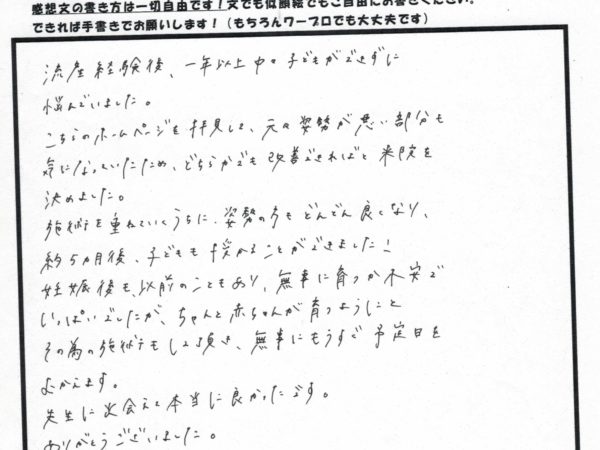 感想文の書き方は一切自由です！文でも似顔絵でもご自由にお書きください。
できれば手書きでお願いします！（もちろんワープロでも大丈夫です）
流産経験後、一年以上中々子どもができずに
悩んでいました。
こちらのホームページを拝見して、元々姿勢が悪い部分も
気になっていたため、どちらかでも改善できればと来院を
決めました。
施術を重ねていくうちに、姿勢の方もどんどん良くなり、
約5カ月後、子どもも授かることができました！
妊娠後も、以前のこともあり、無事に育つか不安で
いっぱいでしたが、ちゃんと赤ちゃんが育つようにと
その為の施術もして頂き、無事にもうすぐ予定日を
むかえます。
先生に出会えて本当に良かったです。
ありがとうございました。